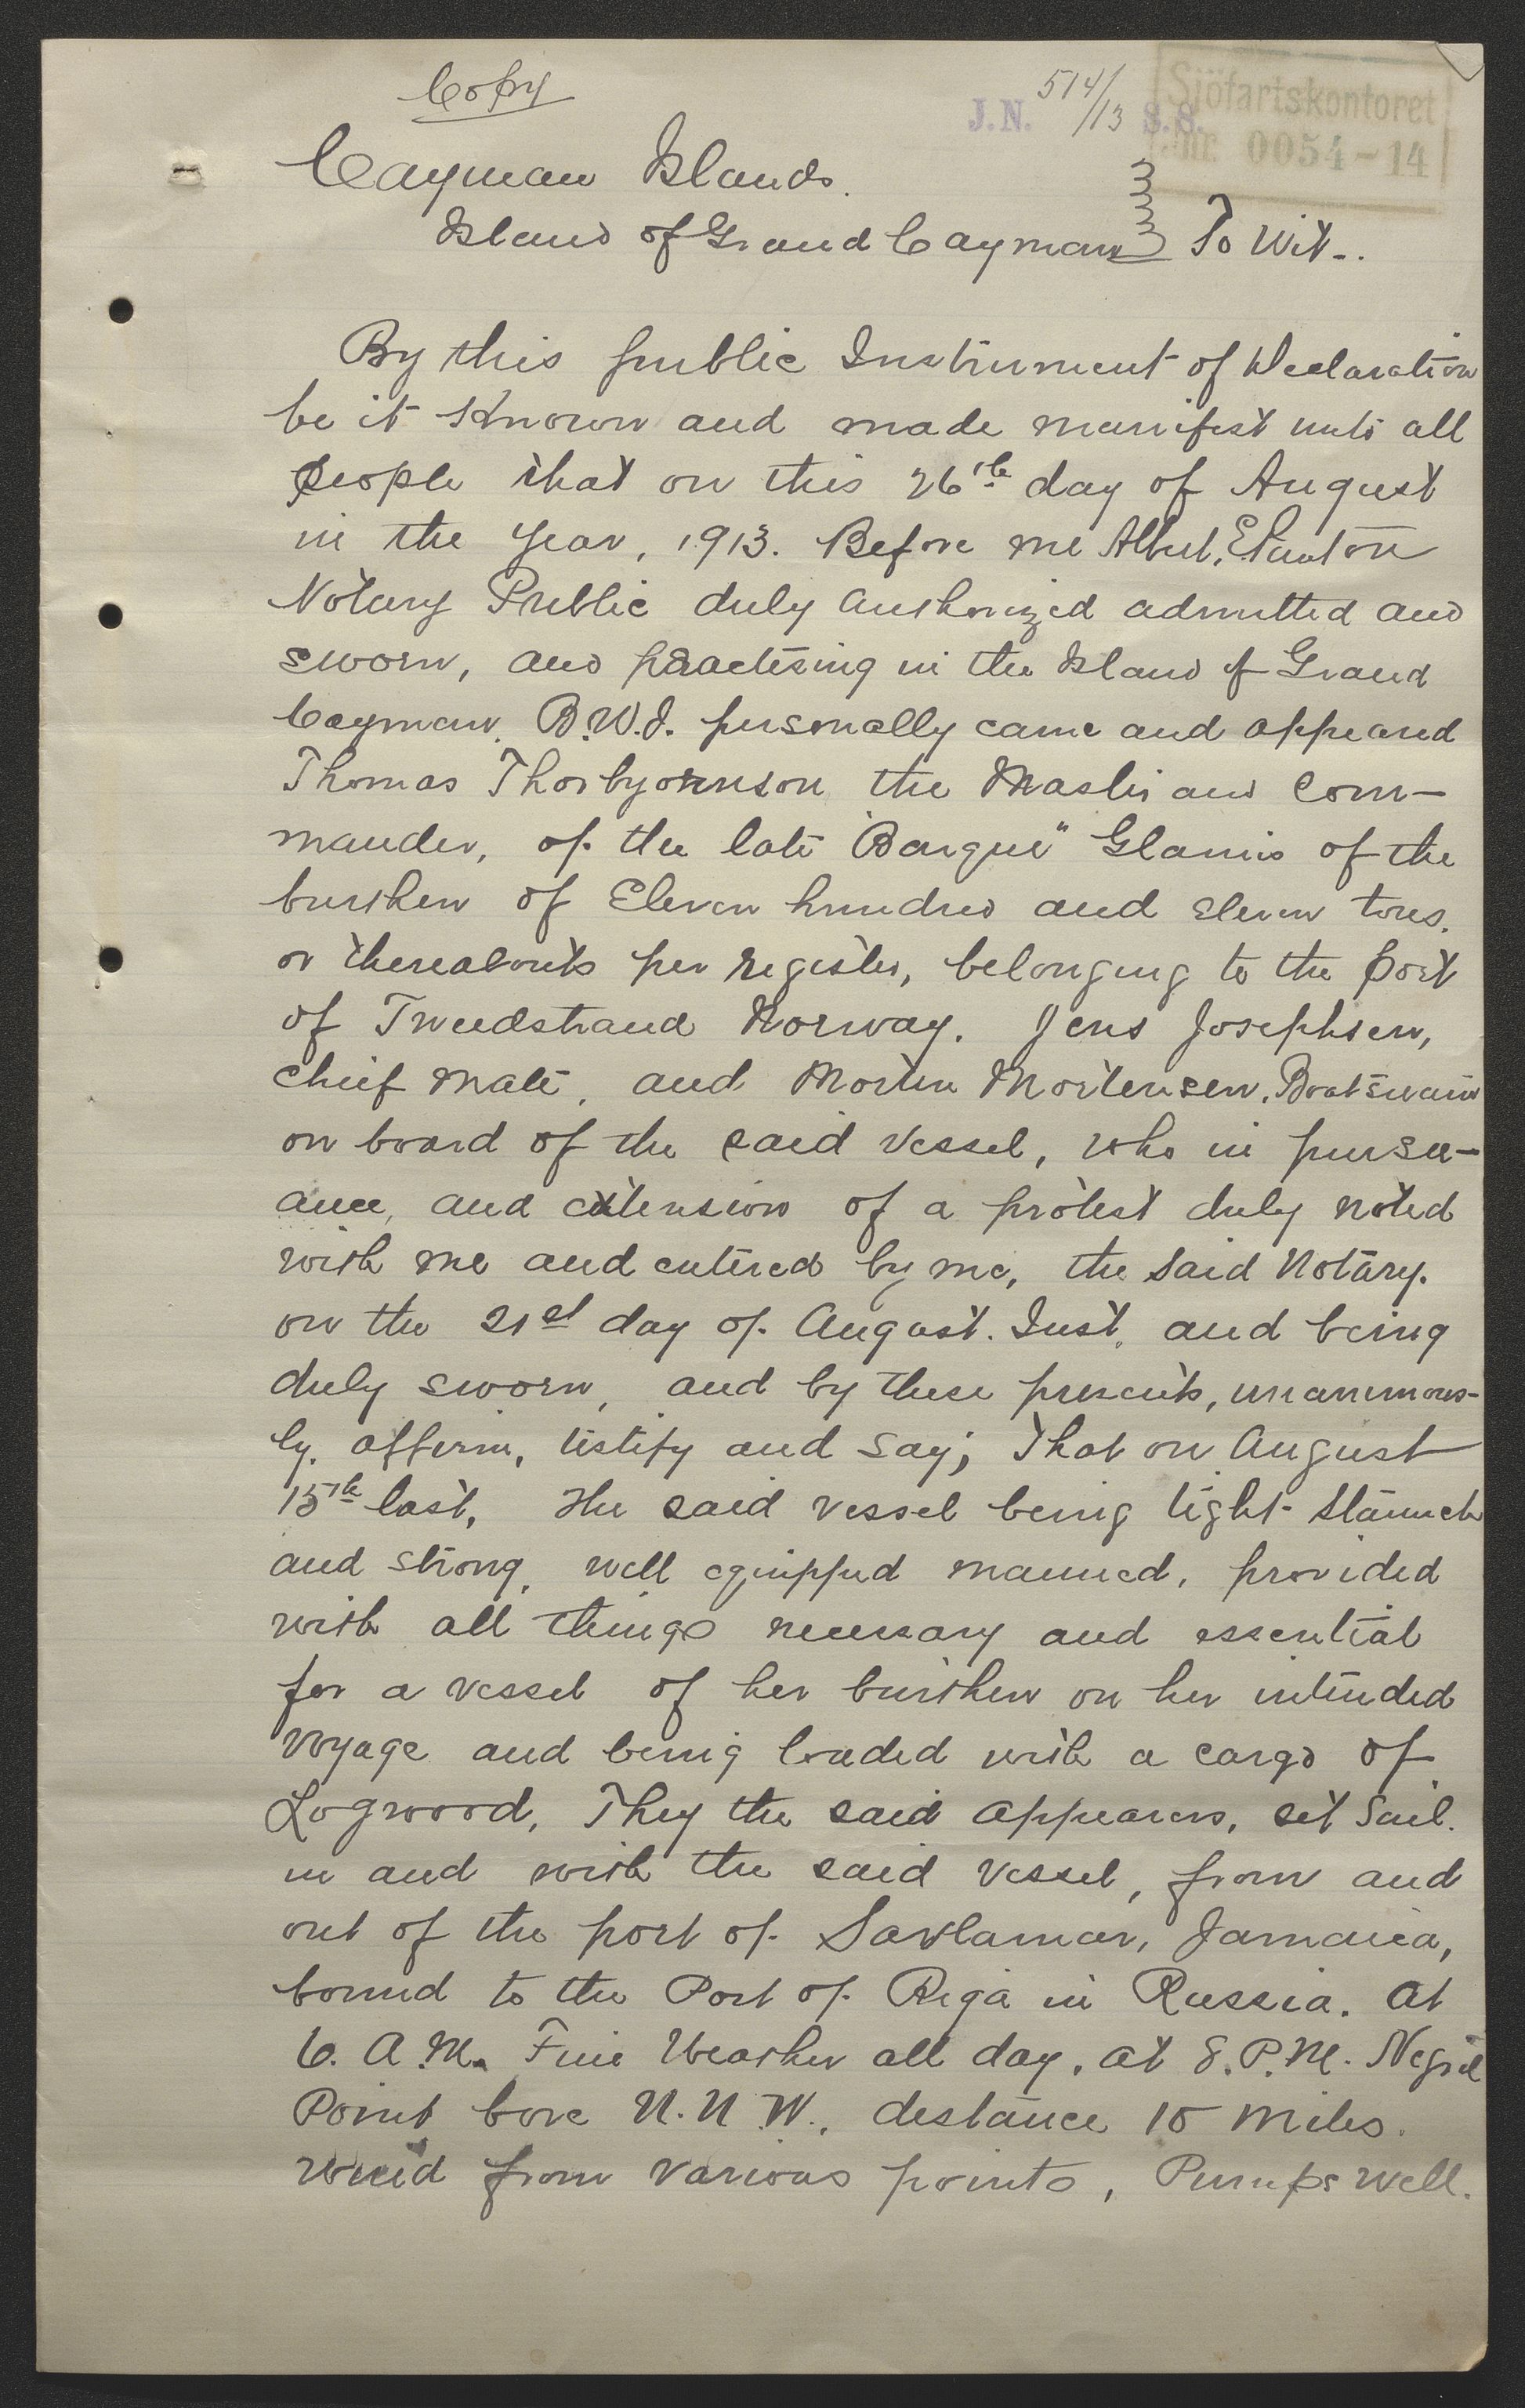 Copy
J.N. 514/13 S.S.
Sjöfartskontoret
Jnr. 0054-14
Cayman Islands.
Island of Grand Cayman } To Wit..
By this public Instrument of Declaration
be it Known and made manifest unto all
people that on this 26th day of August
in the year, 1913. Before me Albert. E Panton
Notary Public duly authorized admitted and
sworn, and practising in the Island of Grand
Cayman. B.W.I. personally came and appeared
Thomas Thorbyornson the Master and Com-
mander, of the late "Barque" Glamis of the
burthen of Eleven hundred and eleven tons.
or thereabouts per register, belonging to the Port
of Tweedstrand Norway. Jens Josephsen,
chief mate, and Morten Mortensen, Boatswain
on board of the said vessel, who in pursu-
ance, and extension of a protest duly noted
with me and entered by me, the said Notary.
on the 21st day of August. Inst. and being
duly sworn, and by these presents, unanimous-
ly, affirm, testify and say; That on August
15th last, the said vessel being tight- staunch
and strong, well equipped manned, provided
with all things necessary and essential
for a vessel of her burthen on her intended
voyage and being loaded with a cargo of
Logwood, They the said appearers, set sail.
in and with the said vessel, from and
out of the port of Savlamar, Jamaica,
bound to the Port of Riga in Russia. At
6. A.M. Fine Weather all day, at 8. P.M. Negril
Point bore N.N.W., distance 15 miles.
Wind from various points, Pumps well.